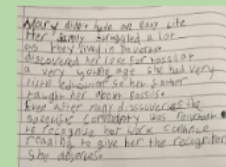 Mary didn't have an easy life
Her family struggled a lot
as they lived in
discovered her love for fossils at
a very young age she had very
little education so her father
taught her about fossils
Even after many discoveries the
scientific community was reluctant
to recognise her work
to give her the recognition
she deserves